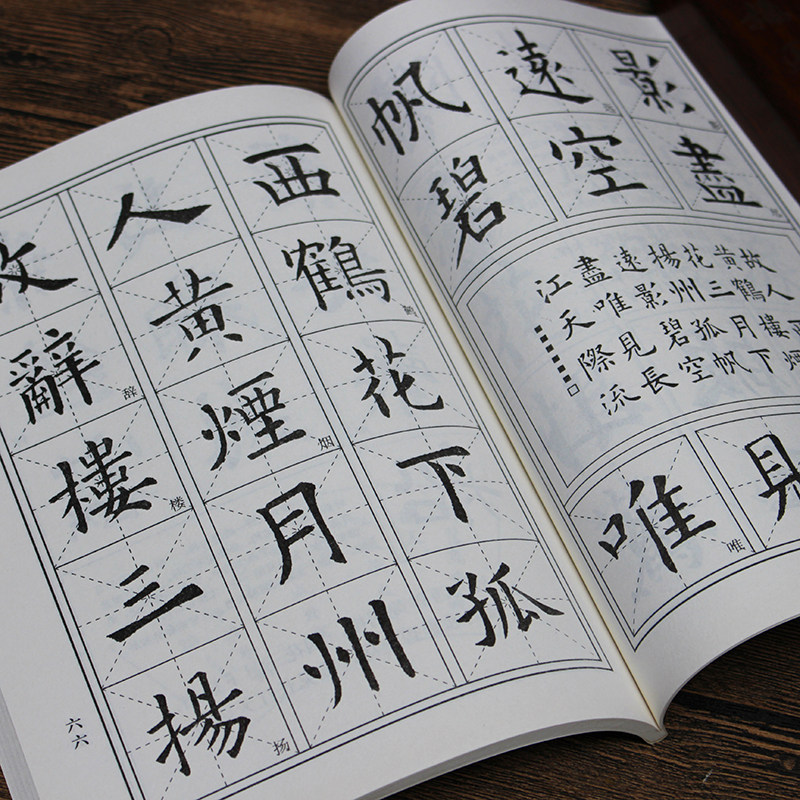 故人西
辭黃鶴
辞
樓煙花
楼 烟
三月下
揚州孤
扬
六六
帆遠影
碧空盡
故人
黃鶴樓煙
花三月下
揚州孤帆
遠影碧空
盡唯見長
江天際流
唯見
唯